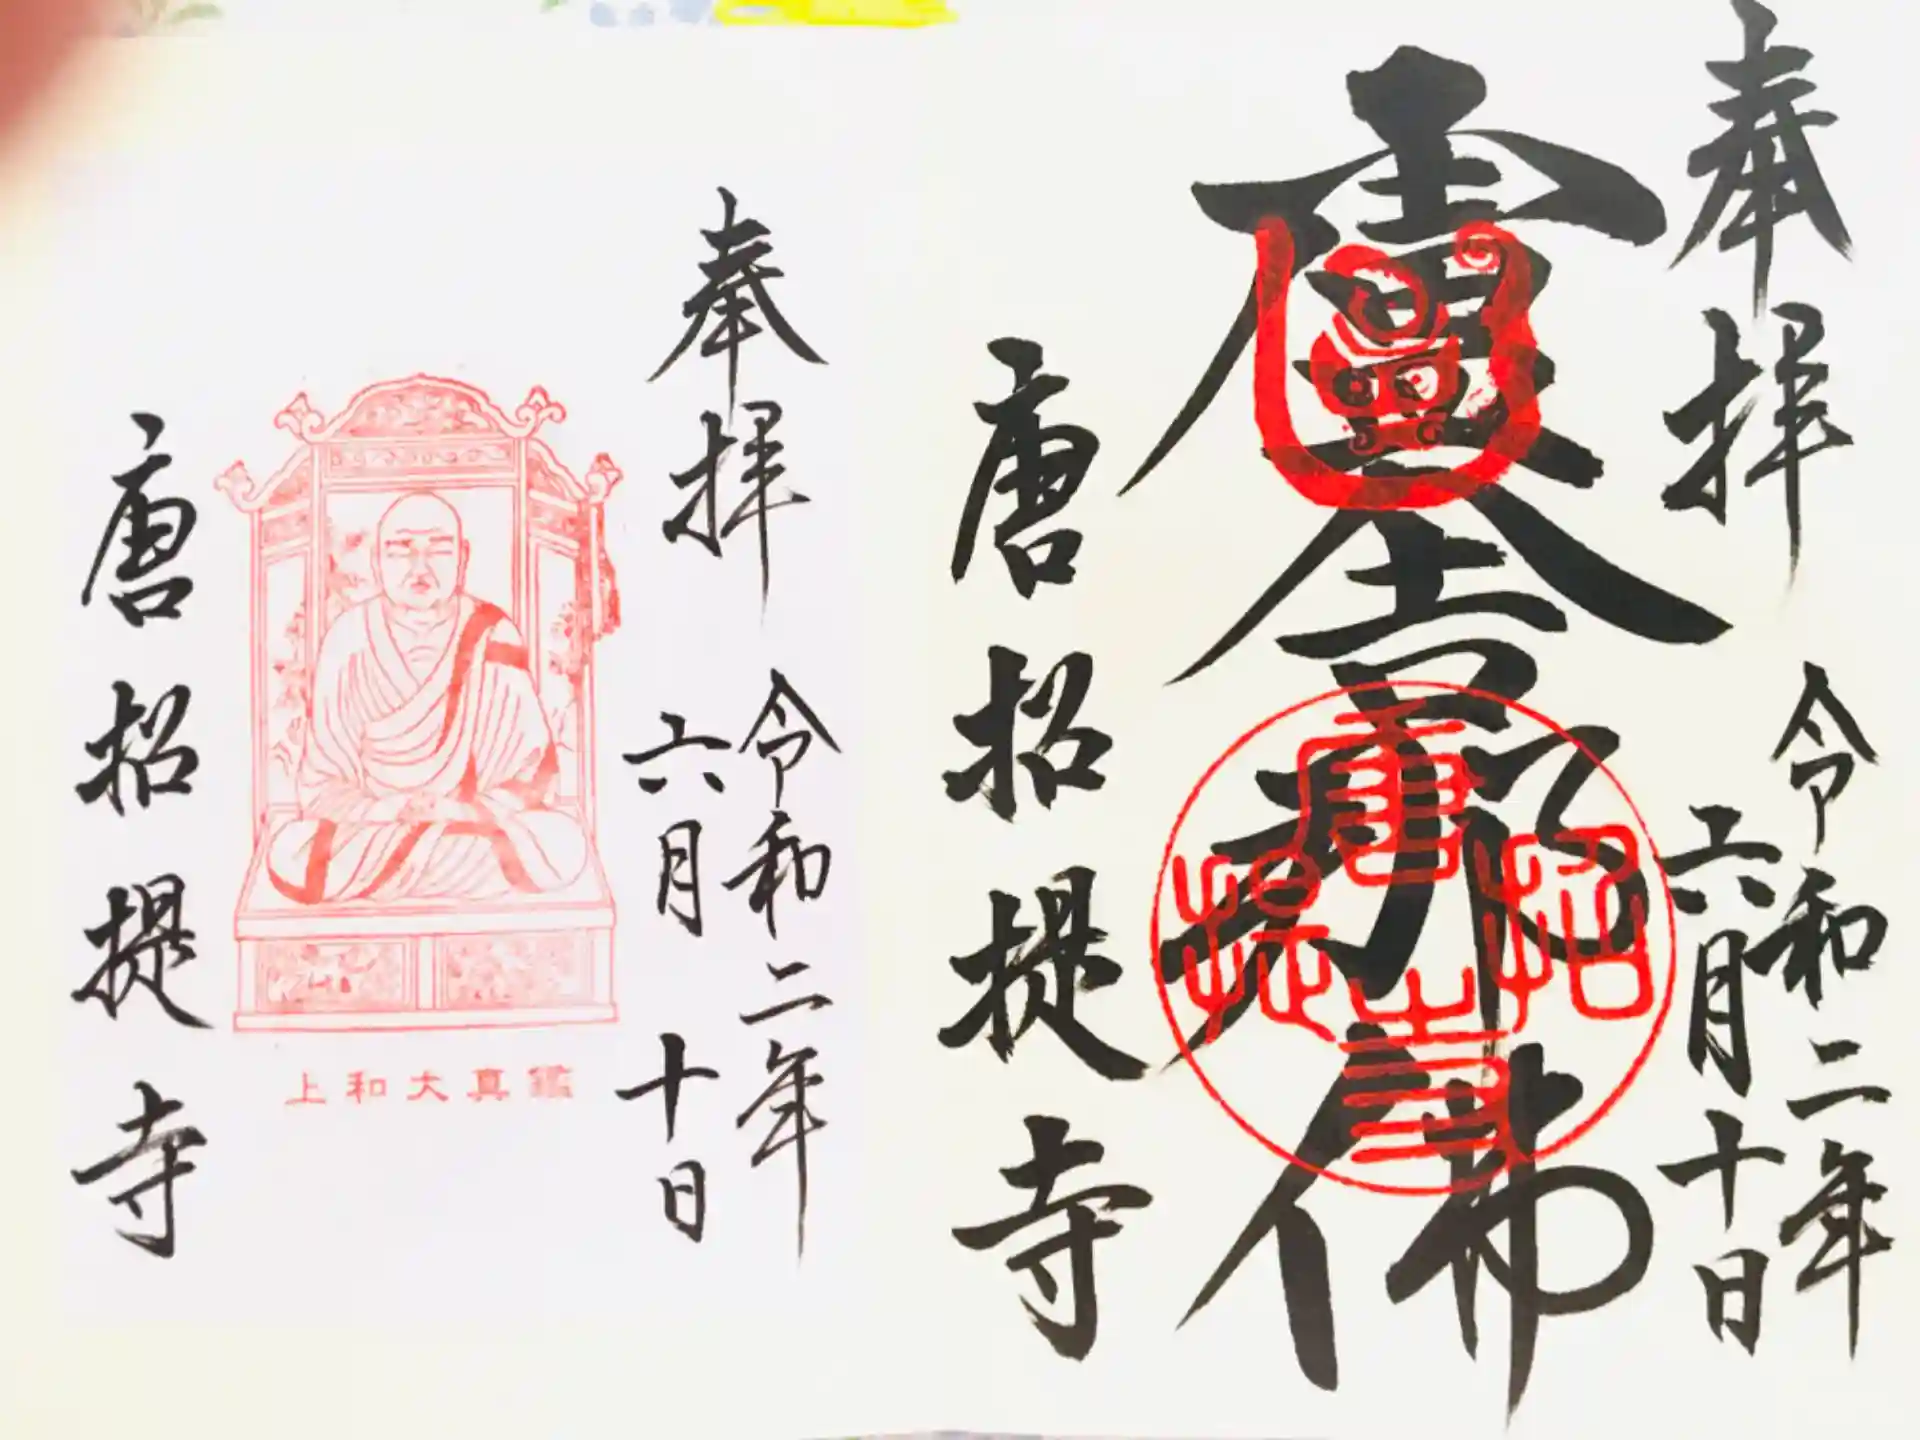 奉拝
令和二年
六月十日
盧舎那佛
唐招提寺
唐招提寺
奉拝
令和二年
六月十日
鑑真大和上
唐招提寺